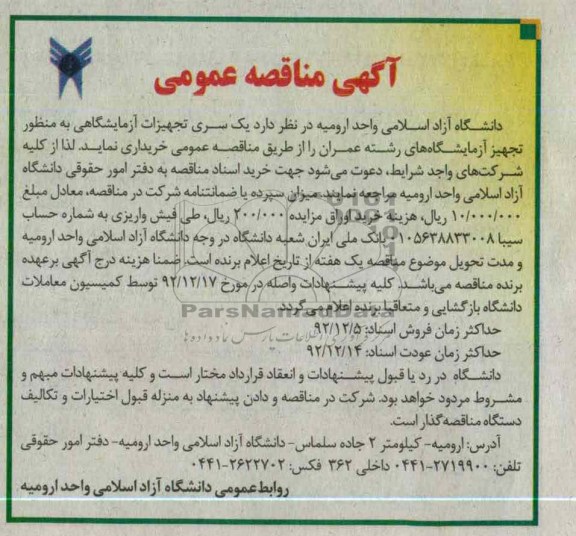 آگهی مناقصه عمومی
دانشگاه آزاد اسلامی واحد ارومیه در نظر دارد یک سری تجهیزات آزمایشگاهی به منظور
تجهیز آزمایشگاه‌های رشته عمران را از طریق مناقصه عمومی خریداری نماید. لذا از کلیه
شرکت‌های واجد شرایط، دعوت می‌شود جهت خرید اسناد مناقصه به دفتر امور حقوقی دانشگاه
آزاد اسلامی واحد ارومیه مراجعه نمایند. میزان سپرده یا ضمانتنامه شرکت در مناقصه، معادل مبلغ
۱۰/۰۰۰/۰۰۰ ریال، هزینه خرید اوراق مزایده ۲۰۰/۰۰۰ ریال، طی فیش واریزی به شماره حساب
سیبا ۰۱۰۵۶۳۸۸۳۳۰۰۸ بانک ملی ایران شعبه دانشگاه در وجه دانشگاه آزاد اسلامی واحد ارومیه
و مدت تحویل موضوع مناقصه یک هفته از تاریخ اعلام برنده است. ضمنا هزینه درج آگهی برعهده
برنده مناقصه می‌باشد. کلیه پیشنهادات واصله در مورخ ۹۲/۱۲/۱۷ توسط کمیسیون معاملات
دانشگاه بازگشایی و متعاقبا برنده اعلام می‌گردد.
ParsNamadData
حداکثر زمان فروش اسناد: ۹۲/۱۲/۵
حداکثر زمان عودت اسناد: ۹۲/۱۲/۱۴
دانشگاه در رد یا قبول پیشنهادات و انعقاد قرارداد مختار است و کلیه پیشنهادات مبهم و
مشروط مردود خواهد بود. شرکت در مناقصه و دادن پیشنهاد به منزله قبول اختیارات و تکالیف
دستگاه مناقصه‌گذار است.
آدرس: ارومیه- کیلومتر ۲ جاده سلماس- دانشگاه آزاد اسلامی واحد ارومیه- دفتر امور حقوقی
تلفن: ۲۷۱۹۹۰۰-۰۴۴۱ داخلی ۳۶۲ فکس: ۲۶۲۲۷۰۲-۰۴۴۱
روابط عمومی دانشگاه آزاد اسلامی واحد ارومیه